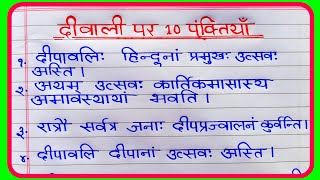 दीवाली पर 10 पंक्तियाँ
१. दीपावलिः हिन्दूनां प्रमुखः उत्सवः
अस्ति।
२. अयम् उत्सवः कार्तिकमासास्य
अमावस्यायां भवति।
३. रात्रौ सर्वत्र जनाः दीपप्रज्वालनं कुर्वन्ति।
४. दीपावलि दीपानां उत्सवः अस्ति।